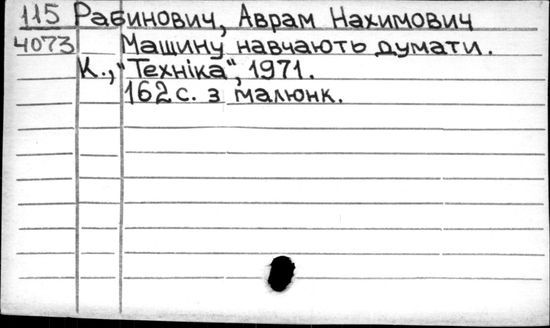 115 Рабинович, Аврам Нахимович
4073 Машину навчають думати.
К., "Техніка", 1971.
162 с. з малюнк.